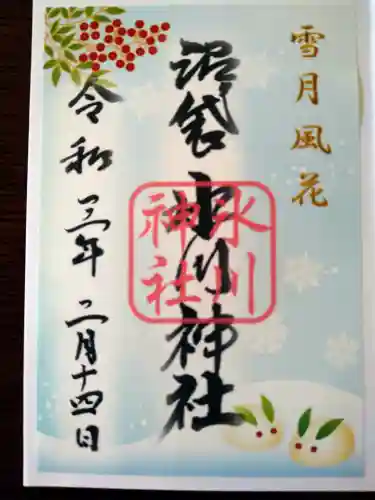 雪月風花
沼袋 氷川神社
氷川
神社
令和三年二月十四日